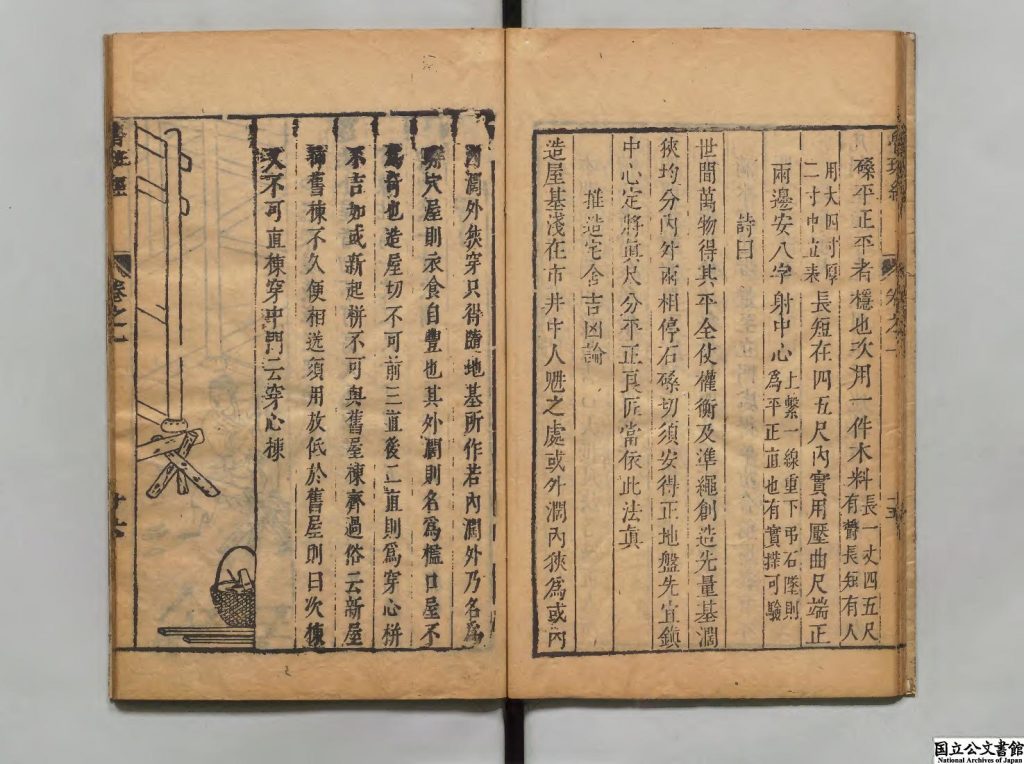 卷之一
十五
磉平正平者穩也次用一件木料長一丈四五尺有長短有人
用大四寸厚二寸中立表長短在四五尺內實用壓曲尺端正
兩邊安八字射中心上繫一線重下吊石墜則為平正直也有實搽可驗
詩曰
世間萬物得其平全仗權衡及準繩創造先量基濶
狹均分內外兩相停石磉切須安得正地盤先宜鎮
中心定將真尺分平正良匠當依此法真
推造宅舍吉凶論
造屋基淺在市井中人魁之處或外濶內狹為或內
濶外狹穿只得隨地基所作若內濶外乃名為
穴屋則衣食自豐也其外濶則名為檻口屋不
為奇也造屋切不可前三直後二直則為穿心栟
不吉如或新起栟不可與舊屋棟齊過俗云新屋
插舊棟不久便相送須用放低於舊屋則曰次棟
又不可直棟穿中門云穿心棟
魯班經
卷之一
十六
国立公文書館
National Archives of Japan